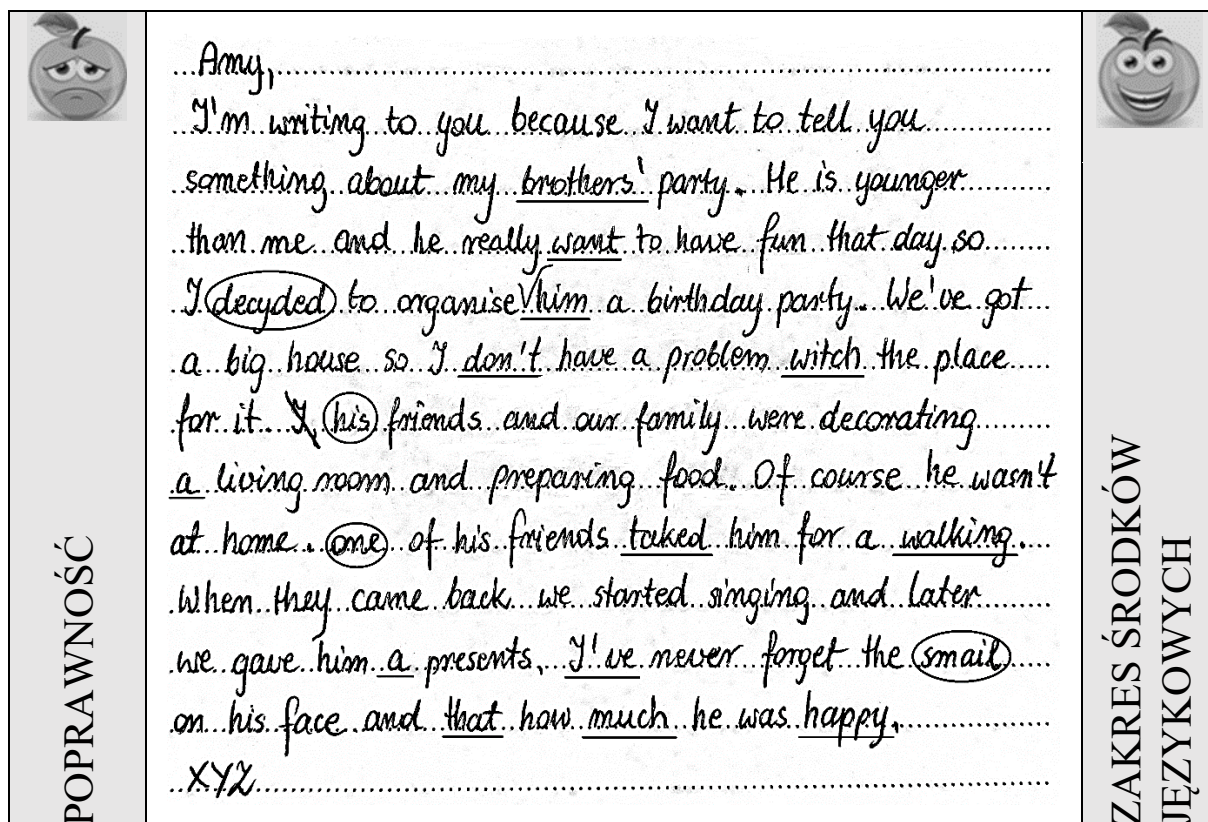 Amy,
I'm writing to you because I want to tell you
something about my brothers' party. He is younger
than me and he really want to have fun that day so
I decyded to organise √him a birthday party. We've got
a big house so I don't have a problem witch the place
for it. I, his friends and our family were decorating
a living room and preparing food. Of course he wasn't
at home. one of his friends taked him for a walking.
When they came back we started singing and later
we gave him a presents. I've never forget the smail
on his face and that how much he was happy.
XYZ
POPRAWNOŚĆ
ZAKRES ŚRODKÓW
JĘZYKOWYCH